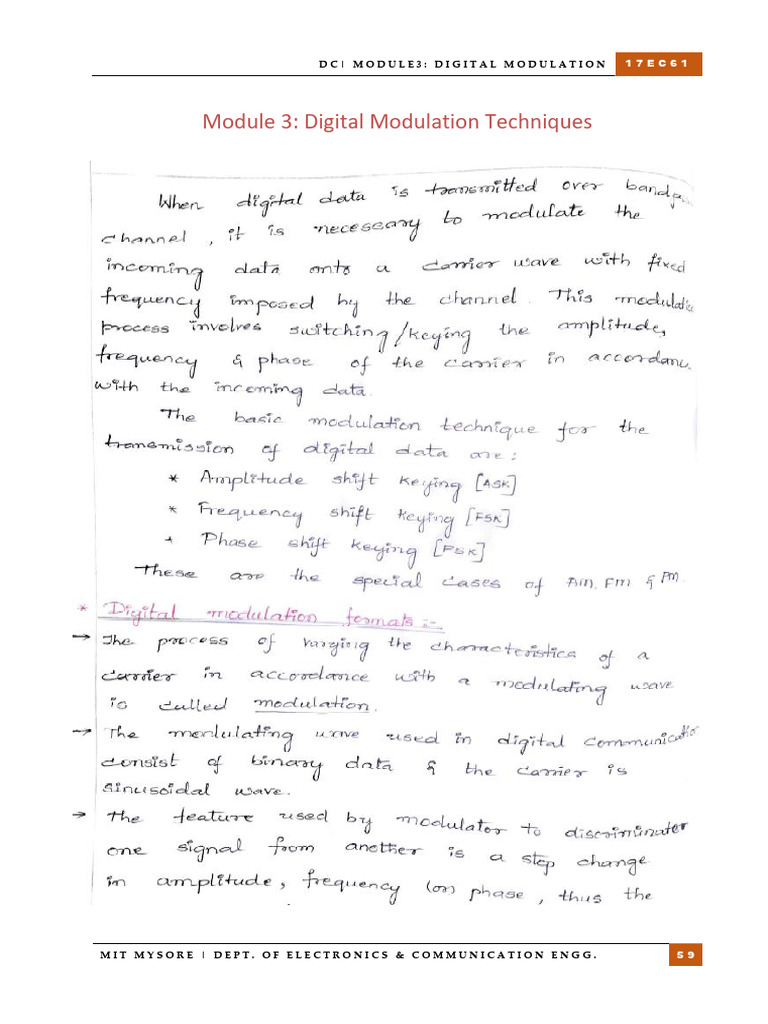 DC| MODULE3: DIGITAL MODULATION 17EC61
Module 3: Digital Modulation Techniques
When digital data is transmitted over bandpa
channel, it is necessary to modulate the
incoming data onto a carrier wave with fixed
frequency imposed by the channel. This modulatio
process involves switching/keying the amplitude,
frequency & phase of the carrier in accordanc
with the incoming data.
The basic modulation technique for the
transmission of digital data are:
* Amplitude shift keying [ASK]
* Frequency shift keying [FSK]
* Phase shift keying [PSK]
These are the special cases of AM, FM & PM.
* Digital modulation formats:-
→ The process of varying the characteristics of a
carrier in accordance with a modulating wave
is called modulation.
→ The modulating wave used in digital communicatio
consist of binary data & the carrier is
sinusoidal wave.
→ The feature used by modulator to discriminater
one signal from another is a step change
in amplitude, frequency (or) phase, thus the
MIT MYSORE | DEPT. OF ELECTRONICS & COMMUNICATION ENGG. 59